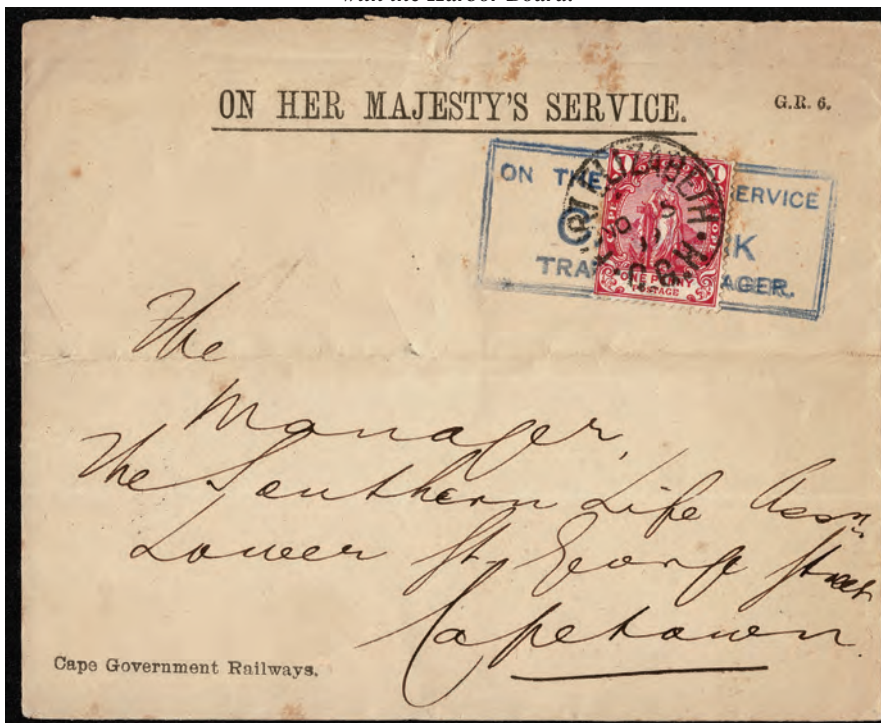 with the Harbor Board.
ON HER MAJESTY'S SERVICE.
G.R. 6.
ON THE SERVICE
TRA AGER.
ELIZABETH
ONE PENNY
POSTAGE
The
Manager,
The Southern Life Assn
Lower St. George Street
Capetown
Cape Government Railways.